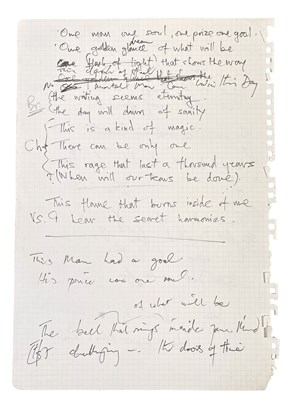 One man one soul, one prize one goal.
dream
One golden glance of what will be
One flash of light that shows the way
No mortal man can win this Day
Br: the waiting seems eternity
the day will dawn of sanity
This is a kind of magic
Ch There can be only one
This rage that last a thousand years
(When will our tears be done)
This flame that burns inside of me
Vs. I hear the secret harmonies
This Man had a goal
His price was one soul
of what will be
The bell that rings inside your Mind
challenging - the doors of time